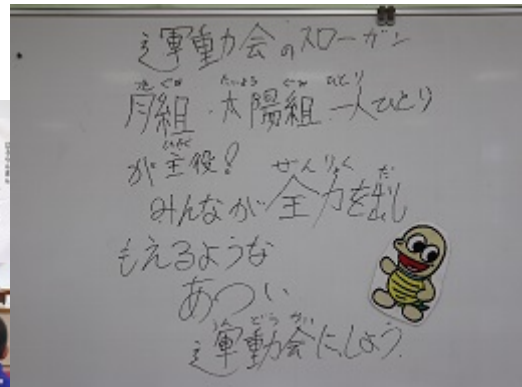 運動会のスローガン
月組・太陽組 一人ひとり
が主役!
みんなが全力を出し
もえるような
あつい
運動会にしよう